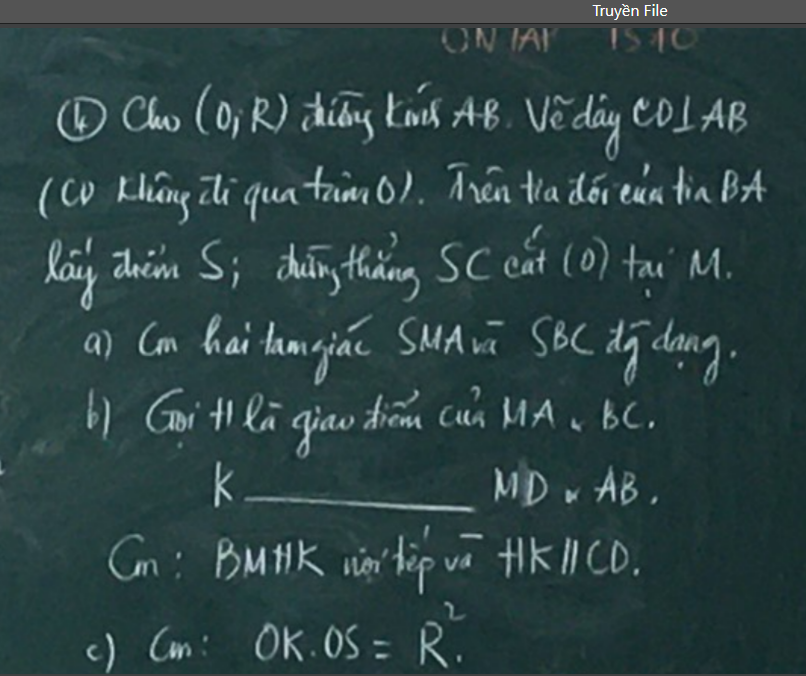 Truyền File
ÔN TẬP TS10
④ Cho (O; R) đường kính AB. Vẽ dây CD ⊥ AB
(CD không đi qua tâm O). Trên tia đối của tia BA
lấy điểm S; đường thẳng SC cắt (O) tại M.
a) Cm hai tam giác SMA và SBC đg dạng.
b) Gọi H là giao điểm của MA & BC.
K ———— MD & AB.
Cm: BMHK nội tiếp và HK // CD.
c) Cm: OK.OS = R².